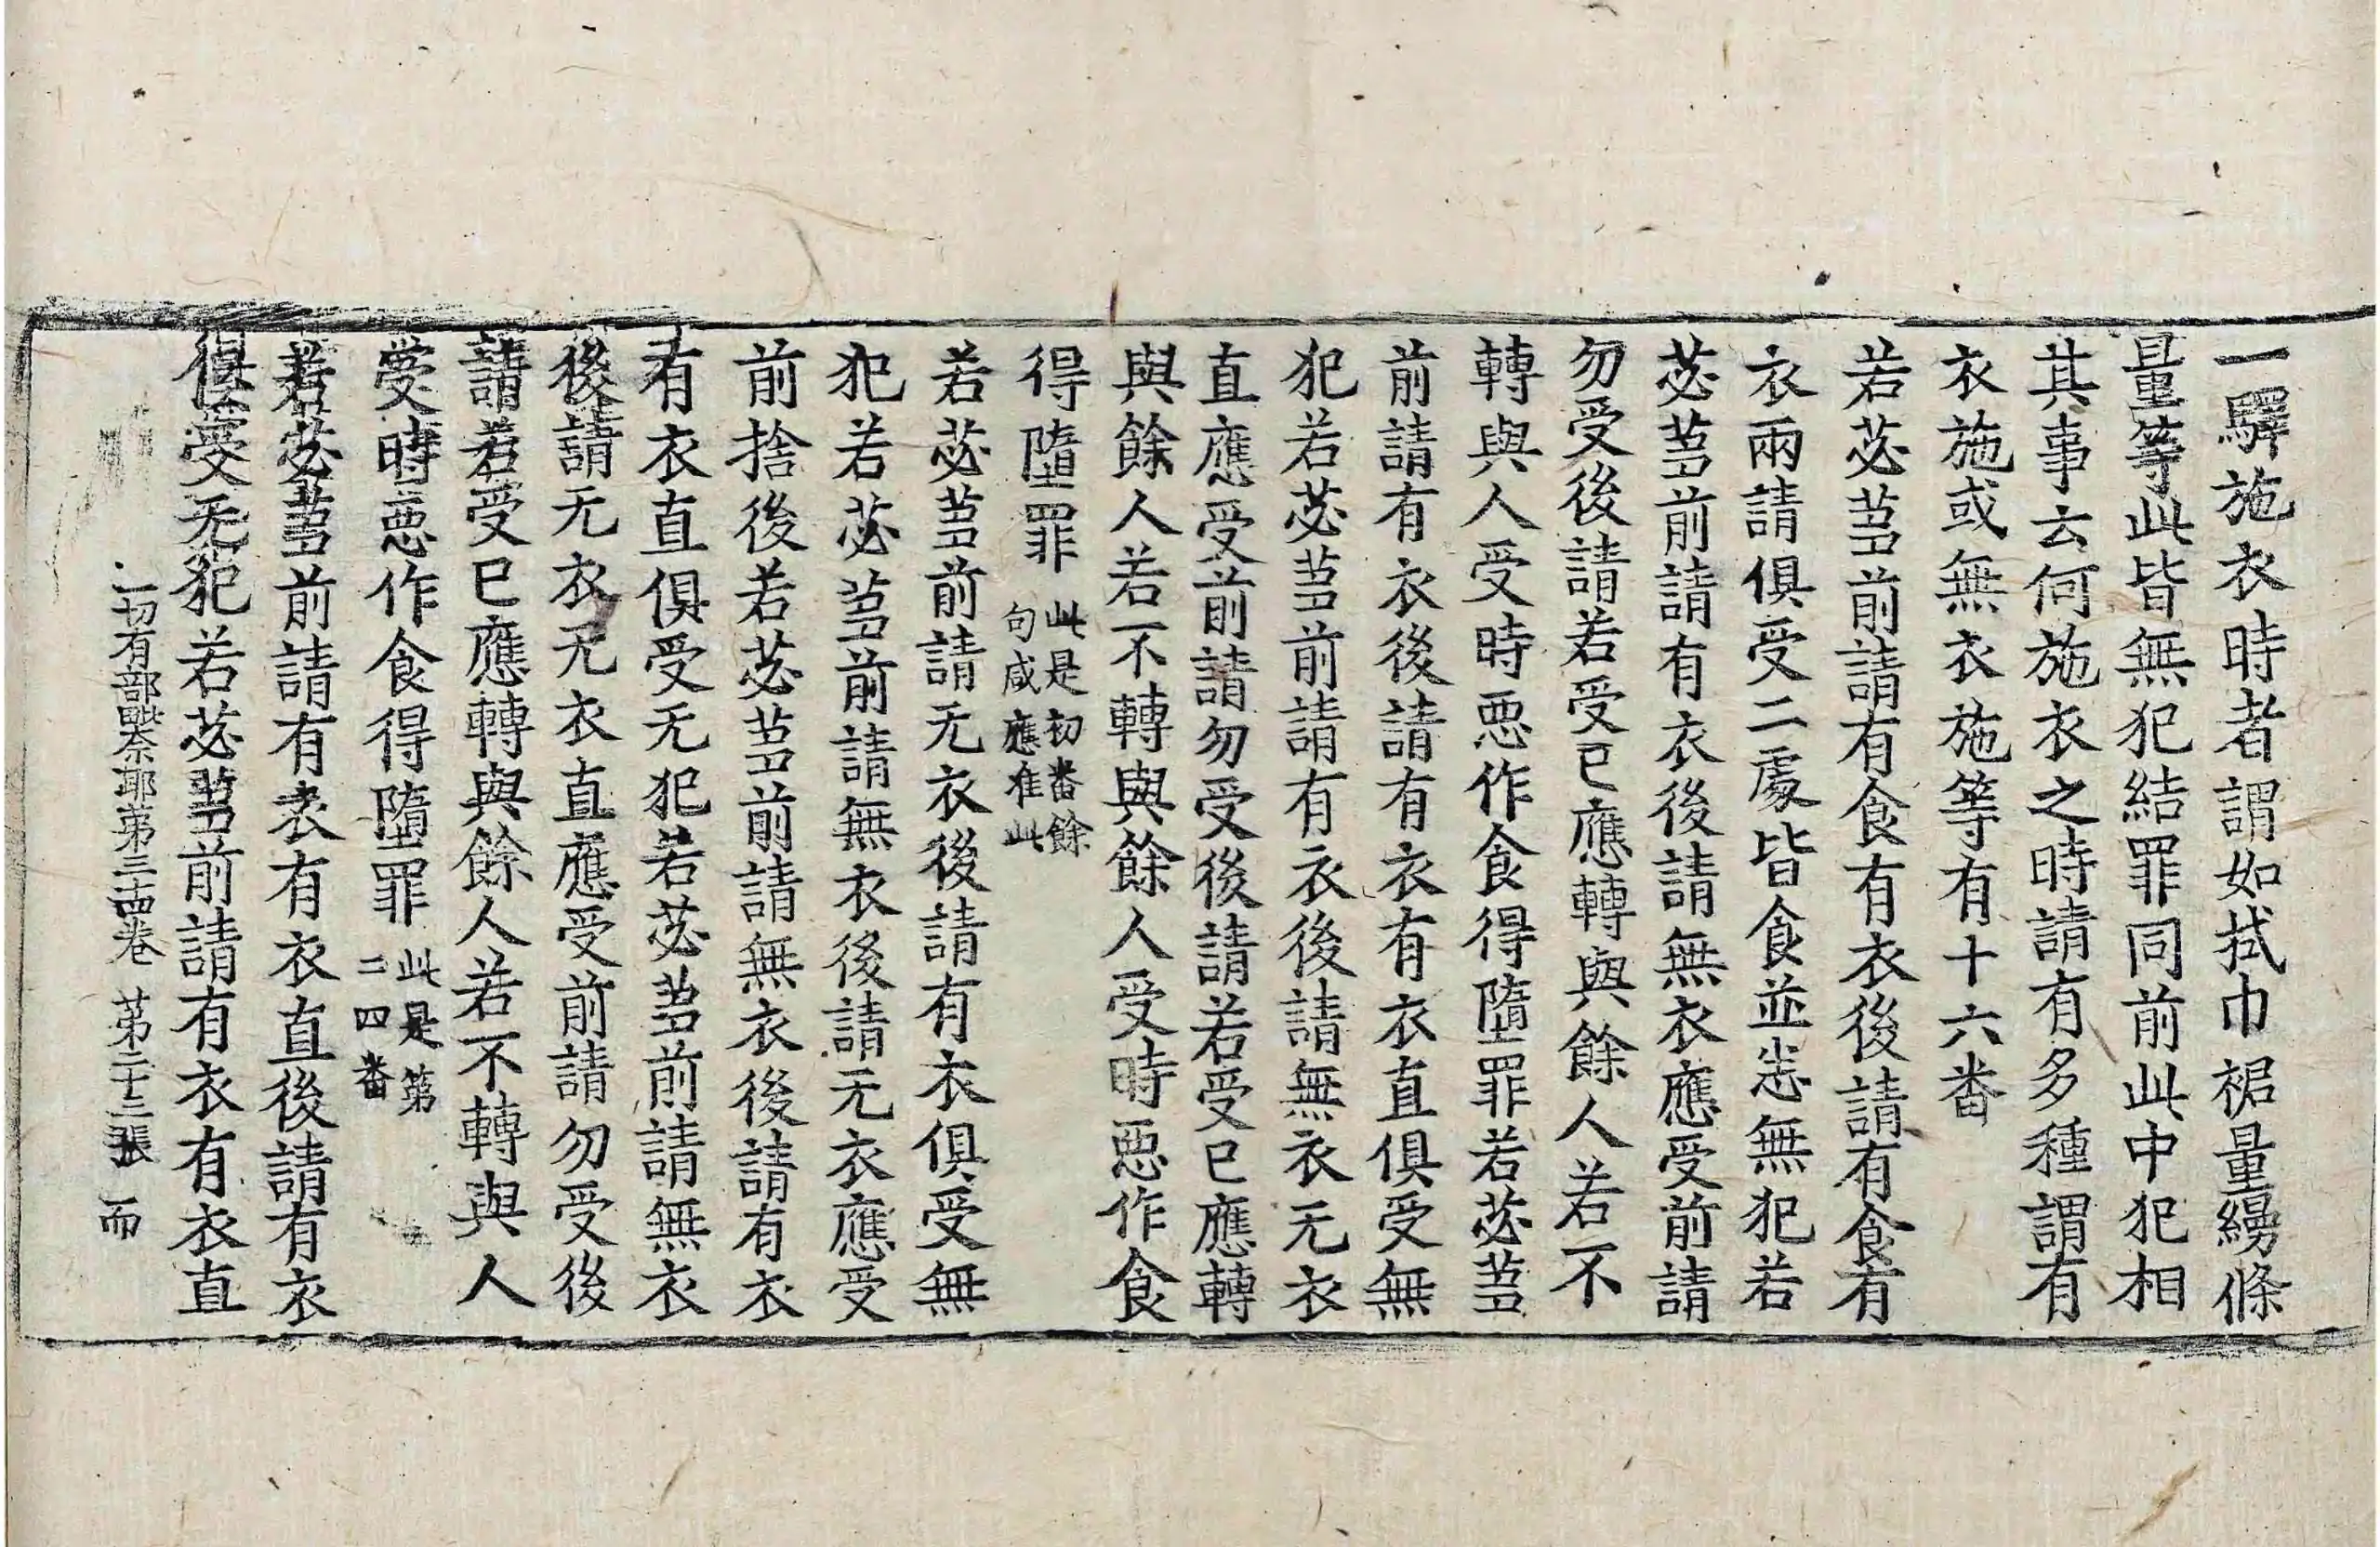 一驛施衣時者謂如拭巾裾量縵條
量等此皆無犯結罪同前此中犯相
其事云何施衣之時請有多種謂有
衣施或無衣施等有十六番
若苾芻前請有食有衣後請有食有
衣兩請俱受二處皆食並悉無犯若
苾芻前請有衣後請無衣應受前請
勿受後請若受已應轉與餘人若不
轉與人受時惡作食得墮罪若苾芻
前請有衣後請有衣有衣直俱受無
犯若苾芻前請有衣後請無衣无衣
直應受前請勿受後請若受已應轉
與餘人若不轉與餘人受時惡作食
得墮罪 此是初番餘
句咸應准此
若苾芻前請无衣後請有衣俱受無
犯若苾芻前請無衣後請无衣應受
前捨後若苾芻前請無衣後請有衣
有衣直俱受无犯若苾芻前請無衣
後請无衣无衣直應受前請勿受後
請若受已應轉與餘人若不轉與人
受時惡作食得墮罪 此是第
二四番
若苾芻前請有衣有衣直後請有衣
俱受无犯若苾芻前請有衣有衣直
一切有部毗奈耶第三十四卷 第二十三張 而